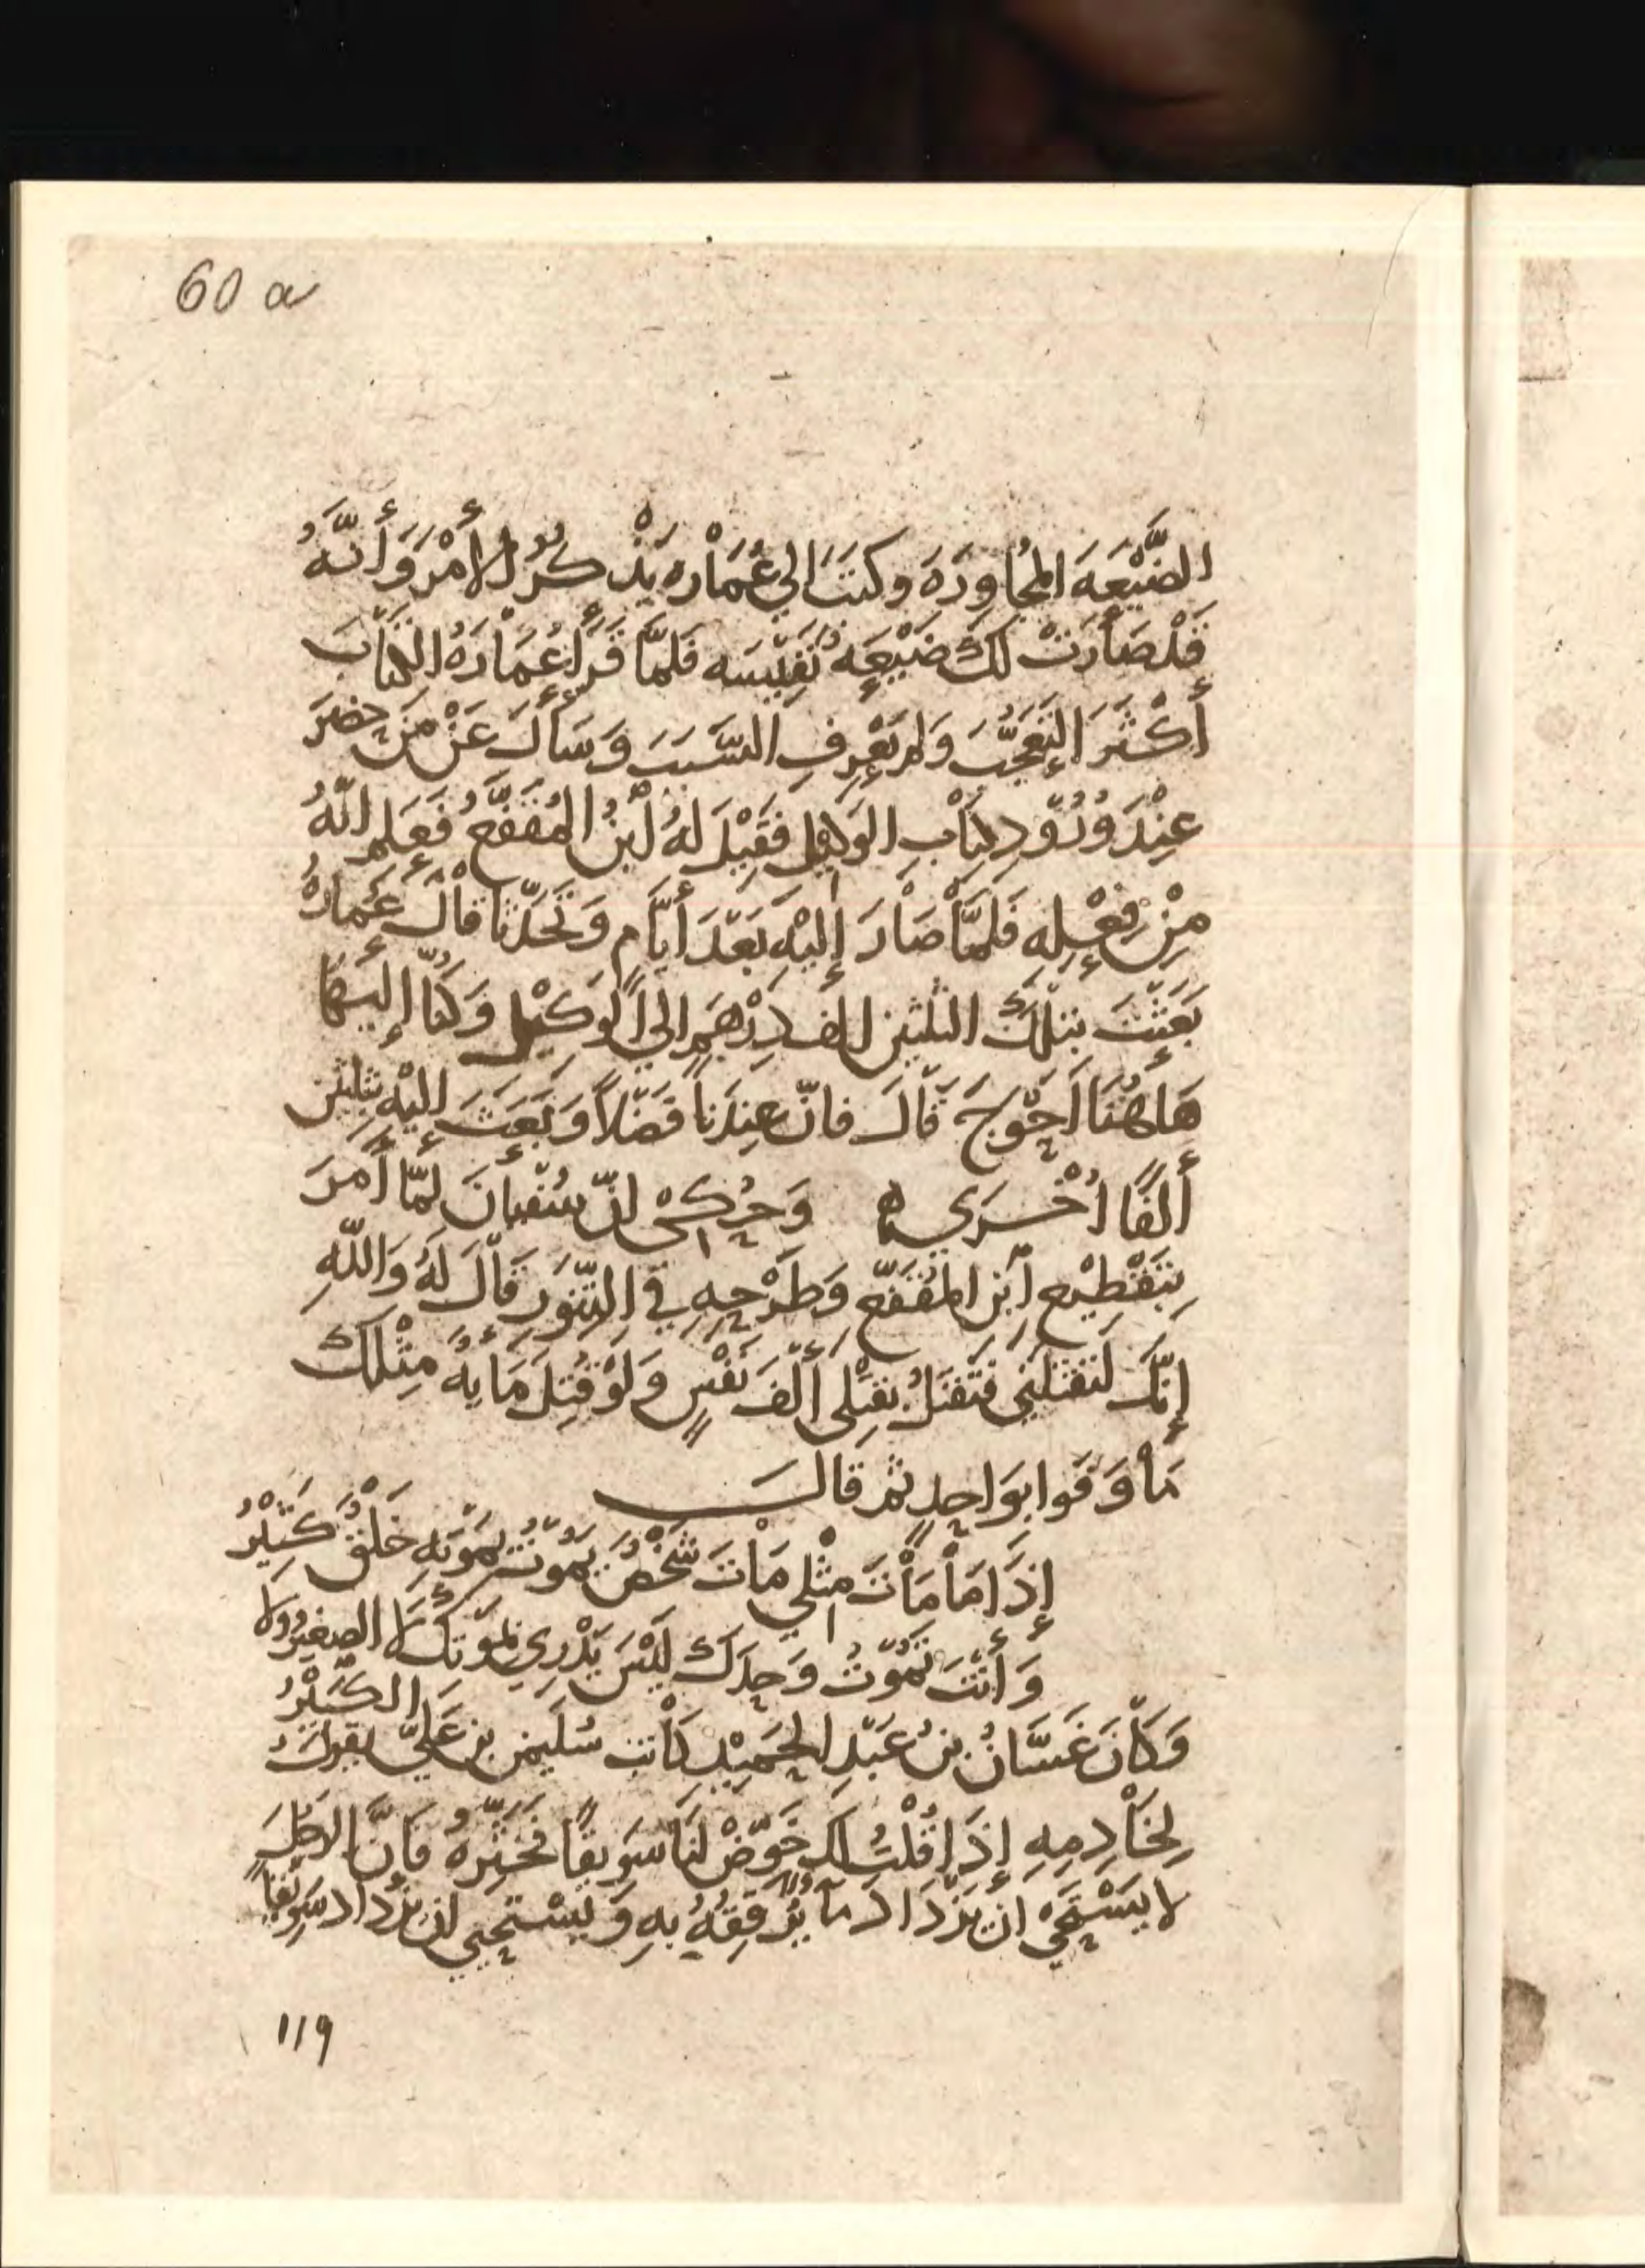 60 a
الضَّيْعَه المُجاوِرَهَ وكتَبَ الي عُمَاْره يَذْكُرُ الأَمْرَ وَأَنَّهُ
قَدْ صَاْرَتْ لَكَ ضَيْعَه نَفِيْسَه فَلَمَّا قَرَأَ عُمَاْرَهُ الكِتَاْبَ
أَكْثَرَ التَعَجُّبَ وَلم يَعْرِفِ السَّبَبَ وَسَأَلَ عَنْ مَنْ حضَرَ
عِنْدَ وُرُوْدِ كِتَاْبِ الوَكِيْلِ فقِيْلَ لَهُ اْبنُ المُقَفَّعُ فَعَلِم انّهُ
مِنْ فِعْلِه فَلَمَّاْ صَاْرَ إِليْهِ بَعْدَ أيَّام وَتحَدَّثا قاْلَ عُمارهُ
بَعَثْتَ بتلْكَ الثلثين الف دِرْهَمٍ الي الوَكيْل وَكُنَّا إليهَا
هَاهُنَا احْوَجَ قَالَ فانّ عِندَنا فَضْلاً وَبَعَثَ إليْهِ بثلثين
أَلفًا اُخْرَي ه وَحُكِيْ انّ سُفيانَ لمّا أَمَرَ
بِتَقْطِيْعِ اْبن المُقَفّعِ وَطَرْحِهِ في التَّنُّور قَاْلَ لَهُ وَاللّهِ
إِنّك لَتقتلني فتَقتلُ بقَتْلي أَلْفَ نَفْسٍ وَلَوْ قُتِلَ مَأيهُ مِثْلكَ
مَاْ وَفَوا بوَاحِدٍ ثم قالَ
إِذَا مَاْ مَاْتَ مِثْلي مَاْتَ شَخْصٌ يَمُوْتُ بمَوْتِهِ خَلْقٌ كَثِيْرُ
وَأَنْتَ تَمُوْتُ وَحدَكَ لَيْسَ يَدْرِي بمَوْتِكَ لا الصغيرُ ولا
الكَبيْرُ
وَكاْنَ غَسَّانُ بنُ عَبْدِ الحَمِيْدِ كاْتب سُليمن بن عَليّ يقولُ
لِخَاْدِمِهِ إِذَا قُلْتُ لك خَوّضْ لنَا سَوِيقًا فخَثِّرهُ فَاِنَّ الرَجُلَ
لا يَسْتَحْي ان يَزْدَادَ مآءً يُرَقِقُهُ بهِ وَيَسْتَحْيي ان يزْدادَ سَوِيْقًا
119